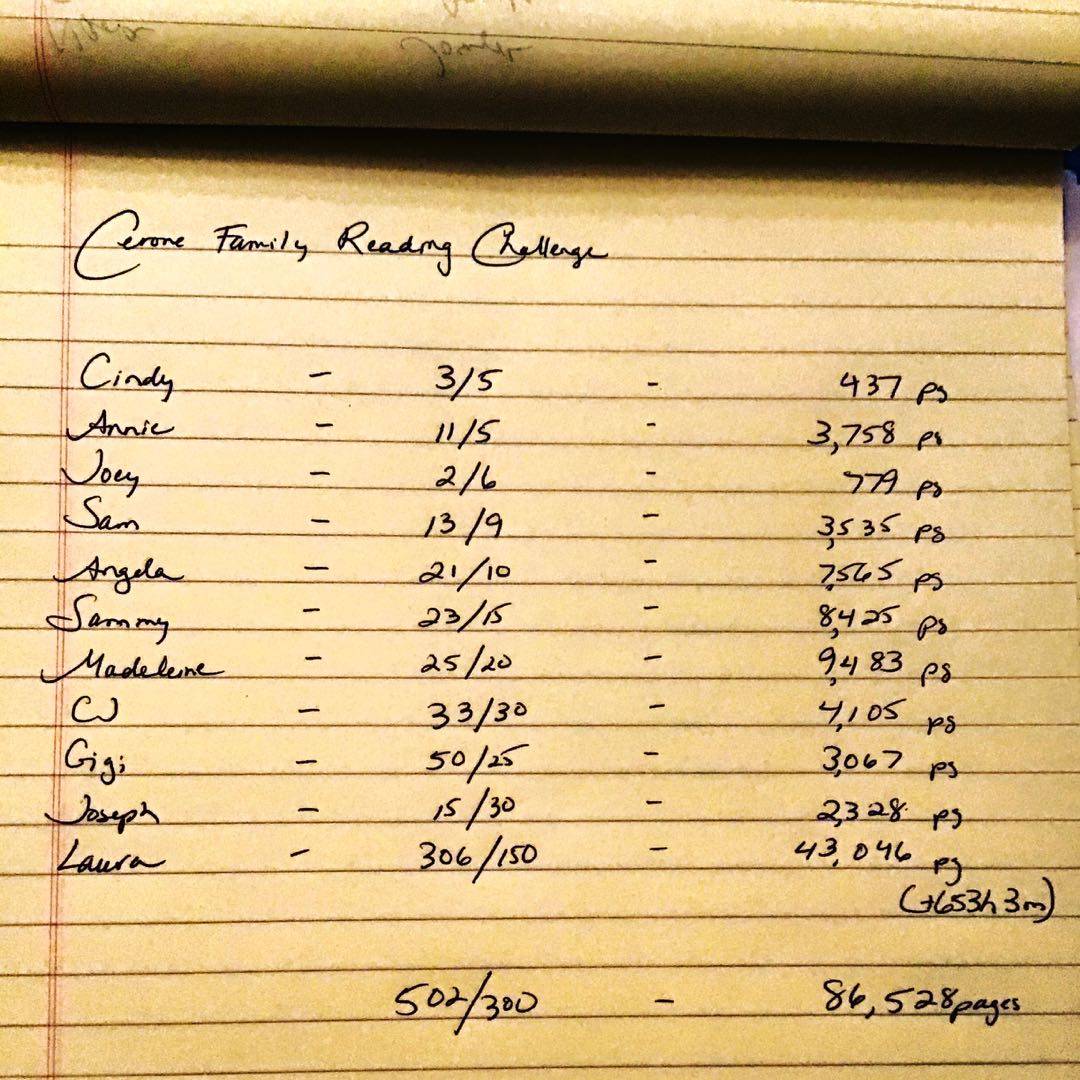 Cerone Family Reading Challenge
Cindy - 3/5 - 437 pg
Annie - 11/5 - 3,758 pg
Joey - 2/6 - 779 pg
Sam - 13/9 - 3,535 pg
Angela - 21/10 - 7,565 pg
Sammy - 23/15 - 8,425 pg
Madeleine - 25/20 - 9,483 pg
CJ - 33/30 - 4,105 pg
Gigi - 50/25 - 3,067 pg
Joseph - 15/30 - 2,328 pg
Laura - 306/150 - 43,046 pg
(+653h 3m)
502/300 - 86,528 pages